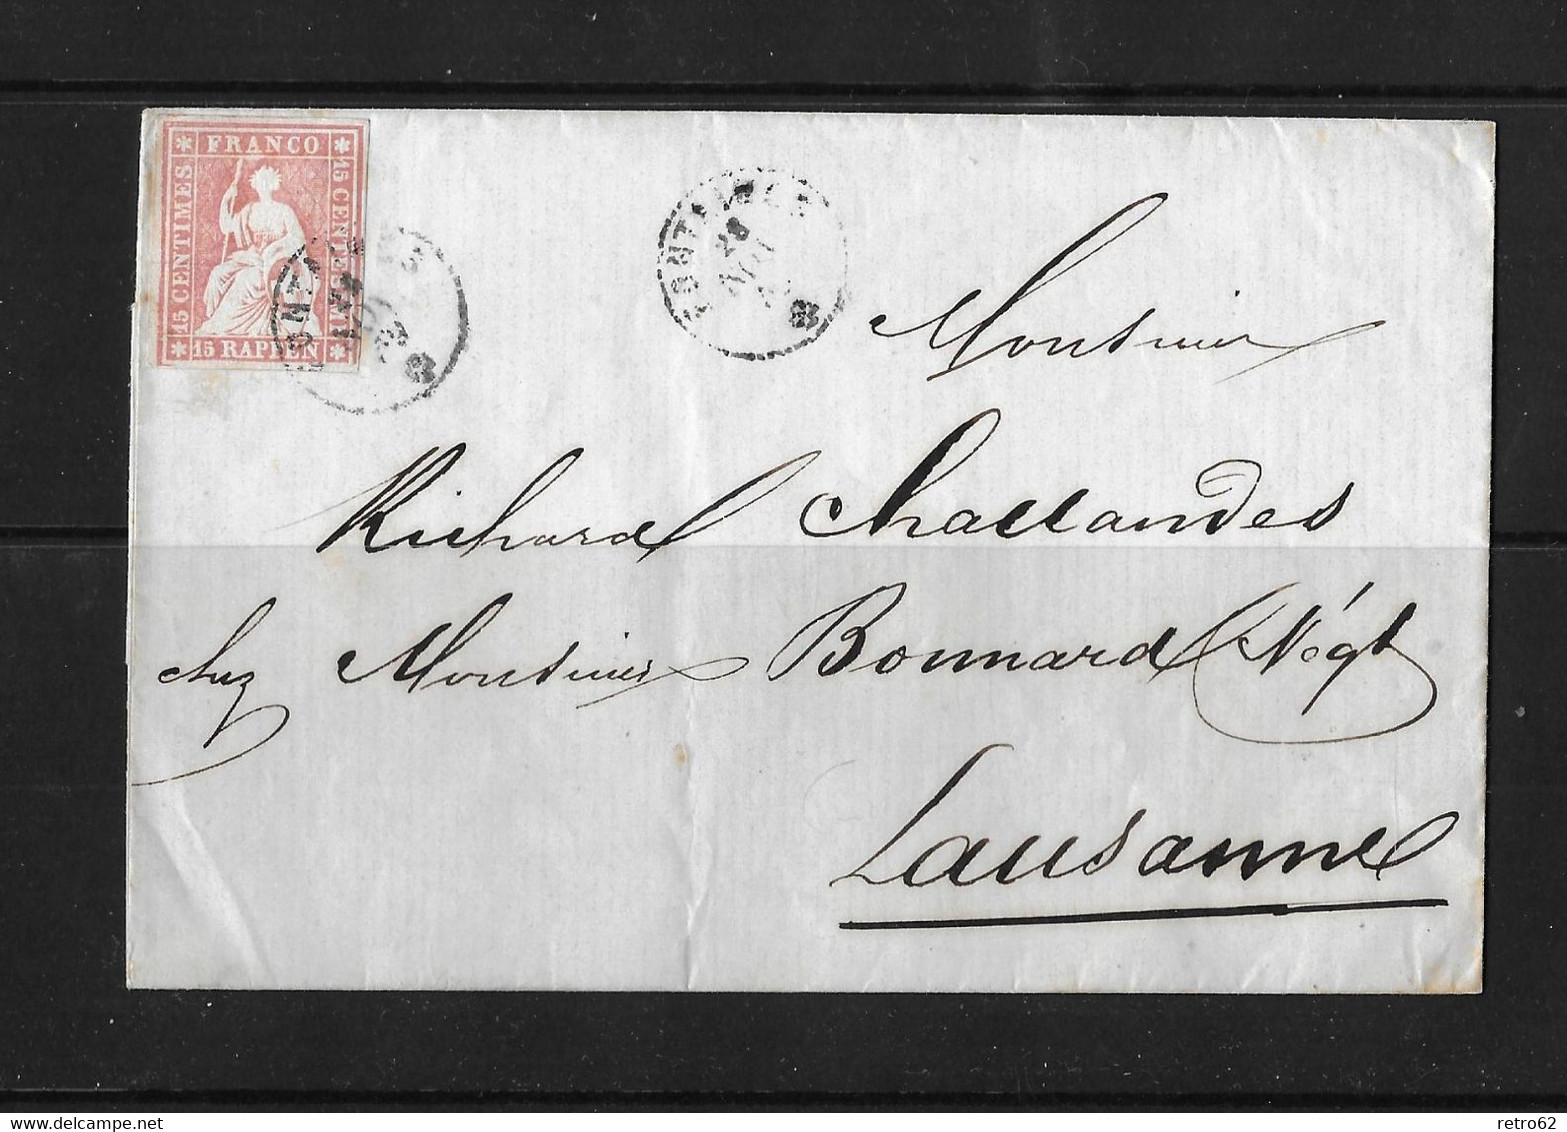 FRANCO
15 CENTIMES
15 CENTESIMI
15 RAPPEN
Monsieur
Richard Challandes
chez Monsieur Bonnard Négt
Lausanne
retro62